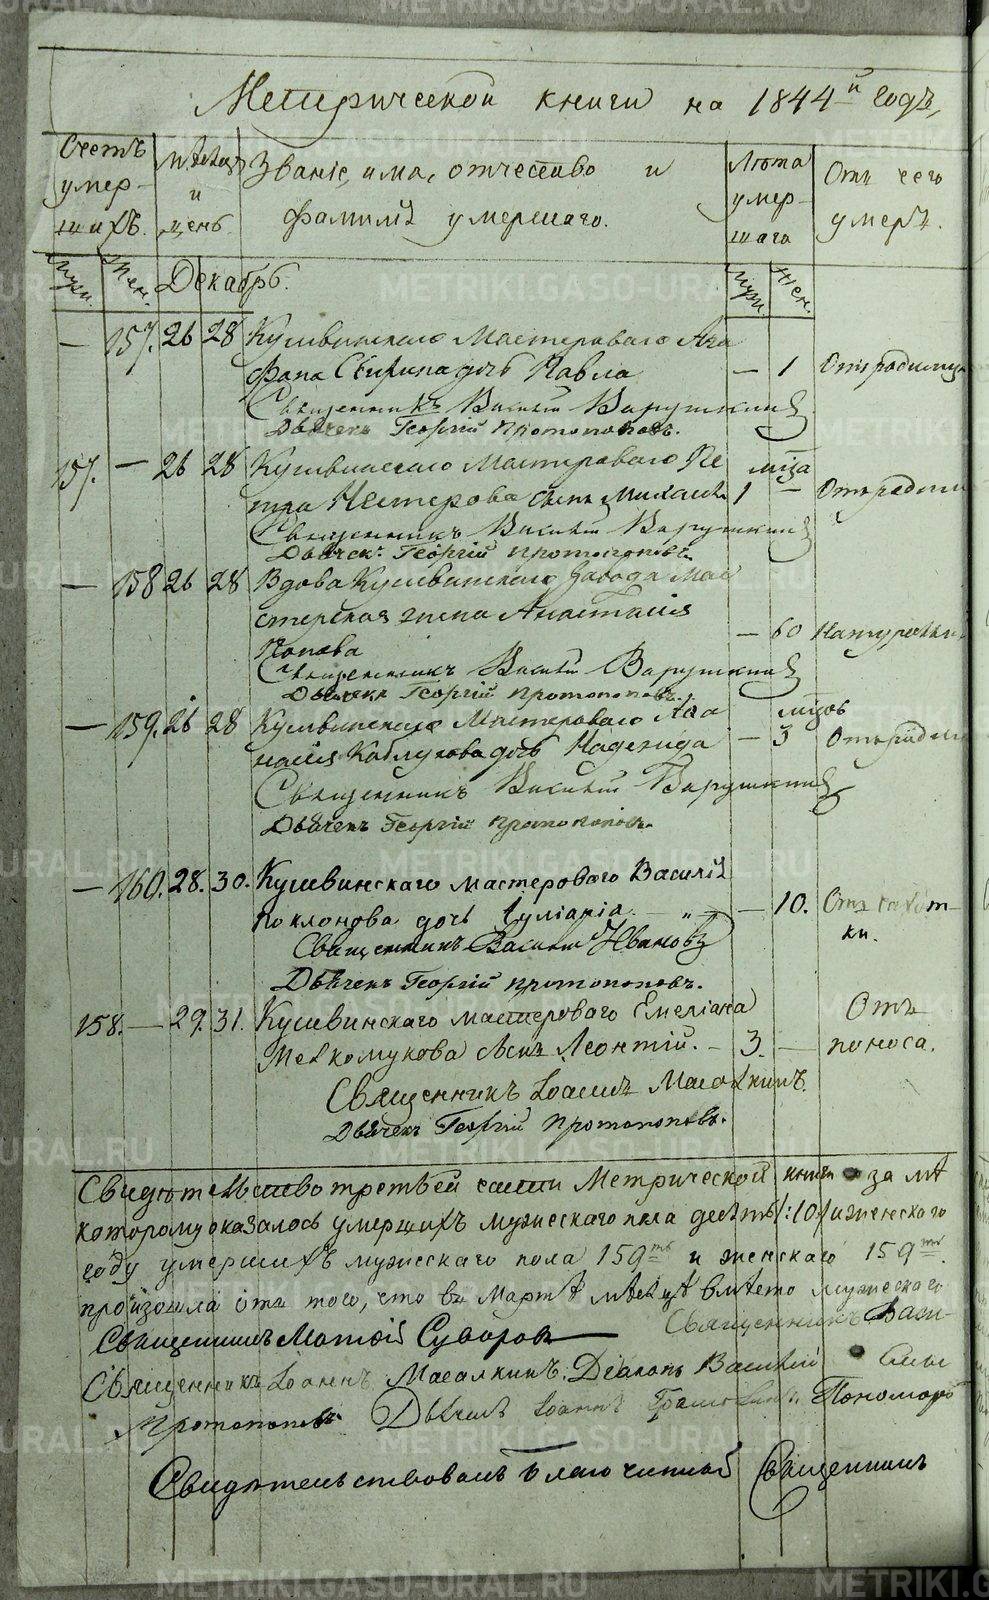 Метрической книги на 1844й годъ,
Счетъ умер- шихъ. мѣсяцъ и день Званіе, имя, отчество и фамилія умершаго. Лѣта умер- шаго Отъ чего умеръ.
Муж. Жен. Декабрь. Муж. Жен.
— 157. 26 28 Кушвинскаго Мастероваго Ага
фана дочь Павла — 1 Отъ родимца
Священникъ Василій Варушкинъ
Дьячекъ Георгій Протопоповъ.
157. — 26 28 Кушвинскаго Мастероваго Пе м҃ца
тра Нестерова сынъ Михаилъ 1 — Отъ родим
Священникъ Василій Варушкинъ
Дьячекъ Георгій Протопоповъ.
— 158 26 28 Вдова Кушвинскаго завода мас
терская жена Анастасія
— 60 Натурально
Попова
Священникъ Василій Варушкинъ
Дьячекъ Георгій Протопоповъ.
— 159. 26 28 Кушвинскаго Мастероваго Афа
насія дочь Надежда — 3 Отъ родим
Священникъ Василій Варушкинъ
Дьячекъ Георгій Протопоповъ.
— 160. 28. 30. Кушвинскаго мастероваго Василія
Поклонова дочь Іуліанія — „ — — 10. Отъ чахот-
ки.
Священникъ Василій Ивановъ
Дьячекъ Георгій Протопоповъ.
158. — 29. 31. Кушвинскаго мастероваго Емеліана Отъ
Мелкомукова сынъ Леонтій. — 3. — поноса.
Священникъ Іоаннъ Масалкинъ.
Дьячекъ Георгій Протопоповъ.
Свидѣтельство третьей части Метрической книги за мѣ
которому оказалось умершихъ мужескаго пола десять /:10:/ и женскаго
году умершихъ мужескаго пола 159ть и женскаго 159ть.
произошла отъ того, что въ Мартѣ мѣсяцѣ вмѣсто мужескаго
Священникъ Матѳій Суворовъ Священникъ Васи-
Священникъ Іоаннъ Масалкинъ. Діаконъ Василій
Протопоповъ Дьячекъ Іоаннъ Пономарь
Свидѣтельствовалъ благочинный Священникъ
METRIKI.GASO-URAL.RU